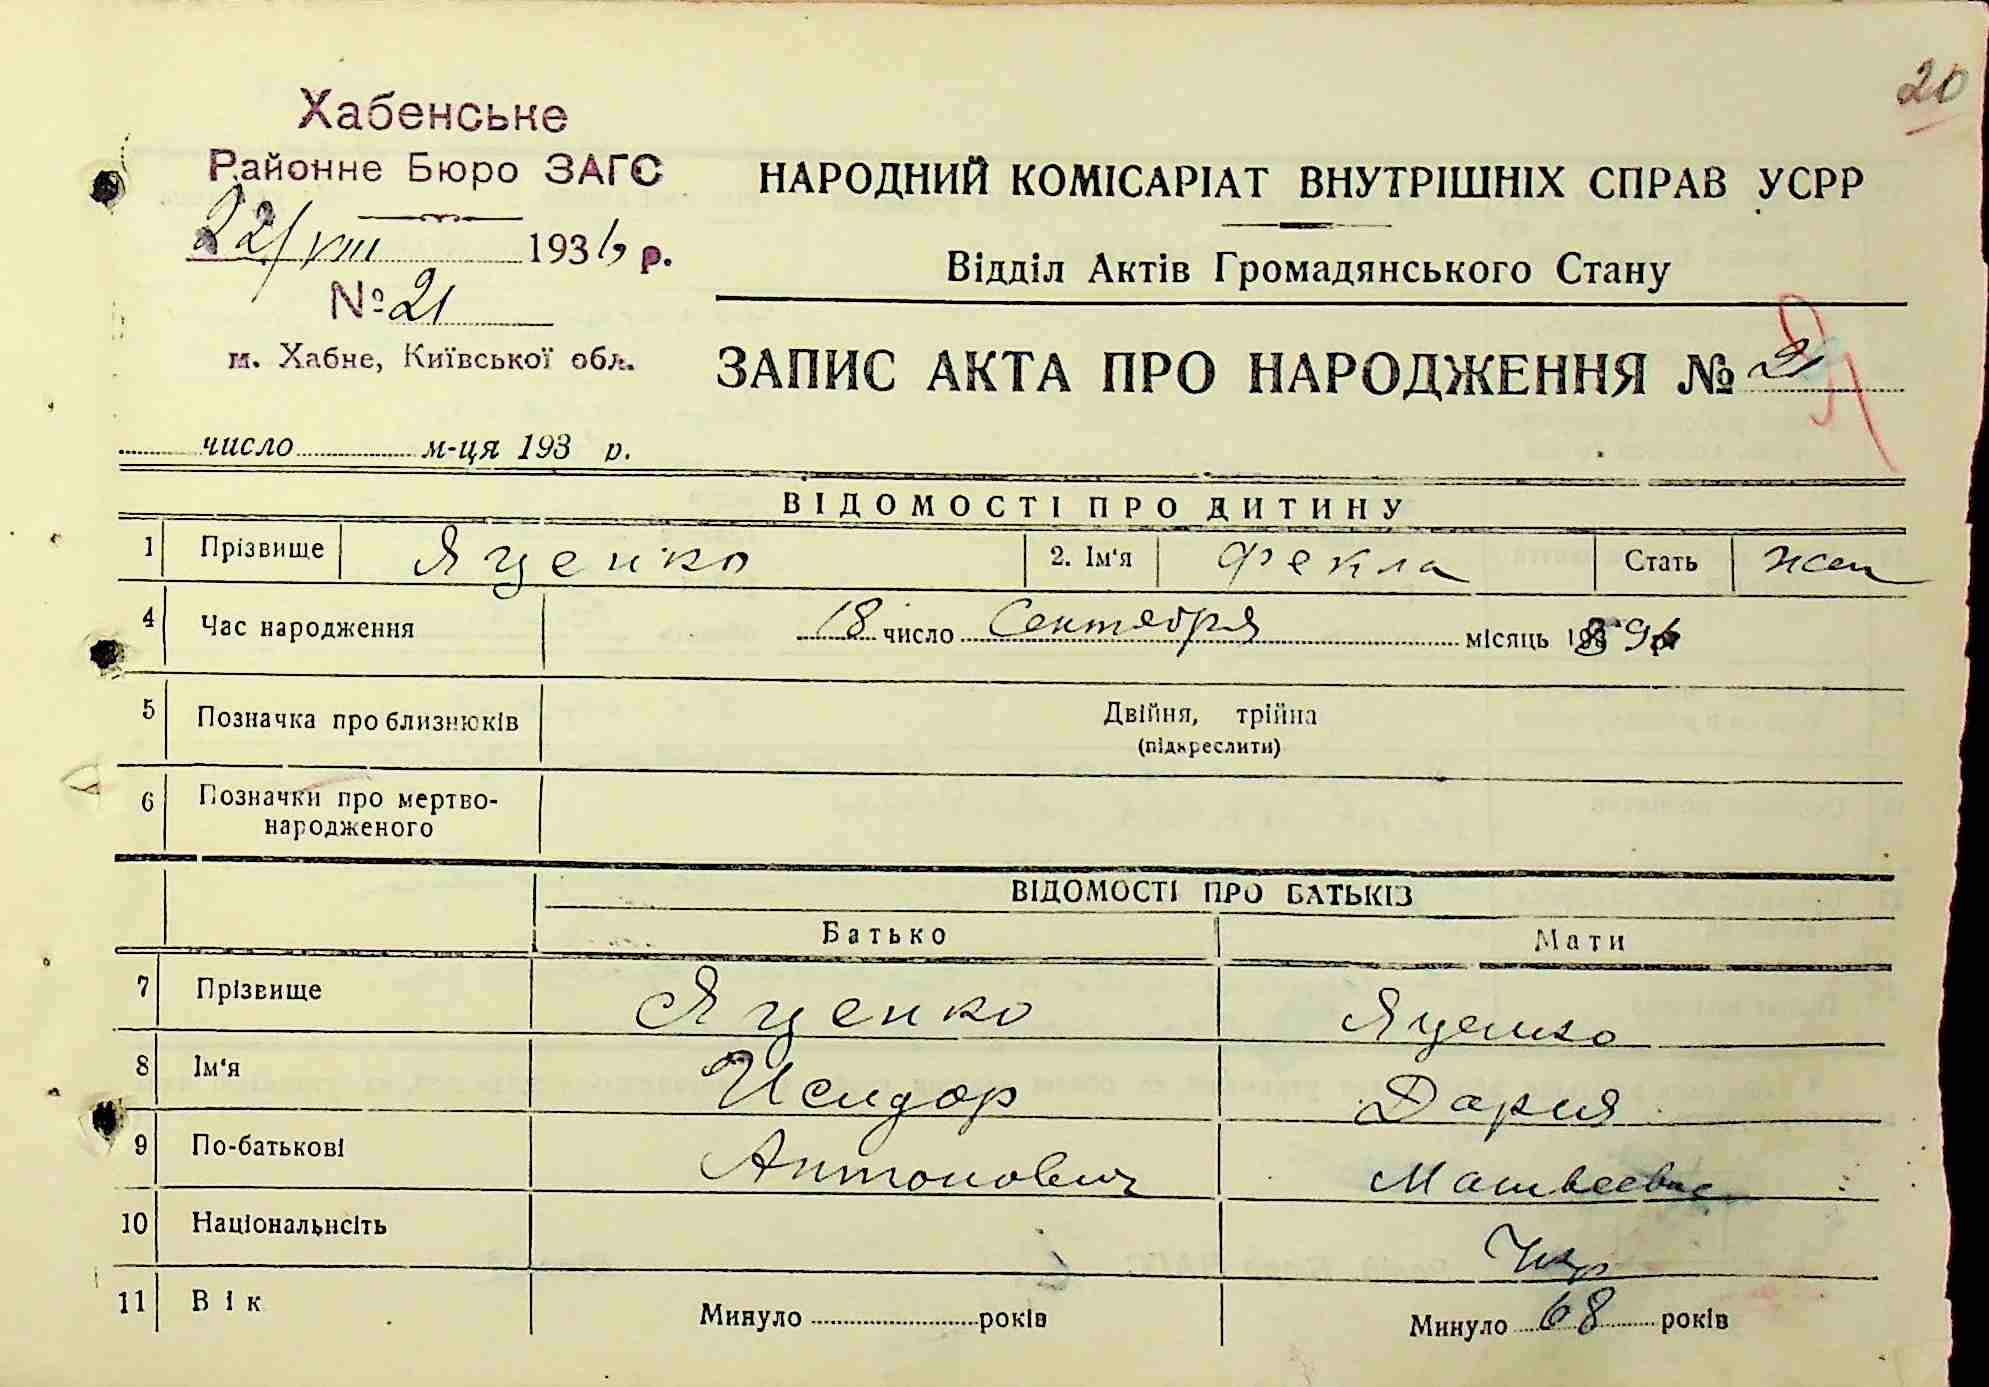 20
Хабенське
Районне Бюро ЗАГС
22/VIII 1936 р.
№ 21
м. Хабне, Київської обл.
НАРОДНИЙ КОМІСАРІАТ ВНУТРІШНІХ СПРАВ УСРР
Відділ Актів Громадянського Стану
ЗАПИС АКТА ПРО НАРОДЖЕННЯ № 21
число м-ця 193 р.
ВІДОМОСТІ ПРО ДИТИНУ
1 Прізвище Яценко 2. Ім‘я Фекла Стать жен
4 Час народження 18 число Сентября місяць 1896
5 Позначка про близнюків Двійня, трійна
(підкреслити)
6 Позначки про мертво-
народженого
ВІДОМОСТІ ПРО БАТЬКІВ
Батько Мати
7 Прізвище Яценко Яценко
8 Ім‘я Исидор Дария
9 По-батькові Антонович Матвеевна
10 Національність Укр
11 Вік Минуло років Минуло 68 років